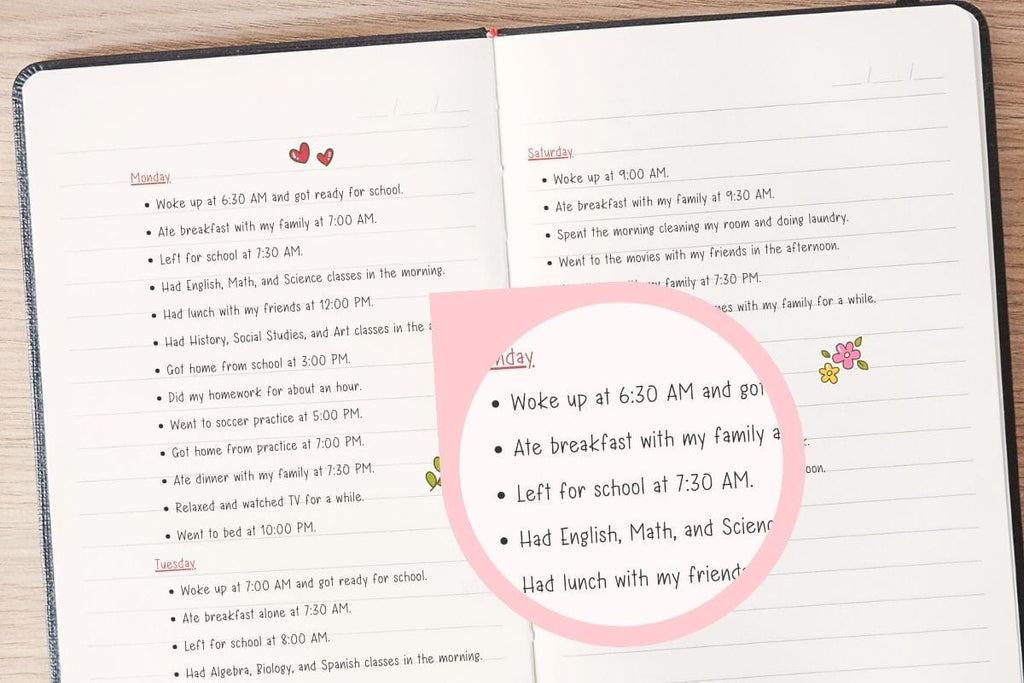 Monday
• Woke up at 6:30 AM and got ready for school.
• Ate breakfast with my family at 7:00 AM.
• Left for school at 7:30 AM.
• Had English, Math, and Science classes in the morning.
• Had lunch with my friends at 12:00 PM.
• Had History, Social Studies, and Art classes in the
• Got home from school at 3:00 PM.
• Did my homework for about an hour.
• Went to soccer practice at 5:00 PM.
• Got home from practice at 7:00 PM.
• Ate dinner with my family at 7:30 PM.
• Relaxed and watched TV for a while.
• Went to bed at 10:00 PM.
Tuesday
• Woke up at 7:00 AM and got ready for school.
• Ate breakfast alone at 7:30 AM.
• Left for school at 8:00 AM.
• Had Algebra, Biology, and Spanish classes in the morning.
Saturday
• Woke up at 9:00 AM.
• Ate breakfast with my family at 9:30 AM.
• Spent the morning cleaning my room and doing laundry.
• Went to the movies with my friends in the afternoon.
family at 7:30 PM.
with my family for a while.
• Woke up at 6:30 AM and got
• Ate breakfast with my family
• Left for school at 7:30 AM.
• Had English, Math, and
Had lunch with my